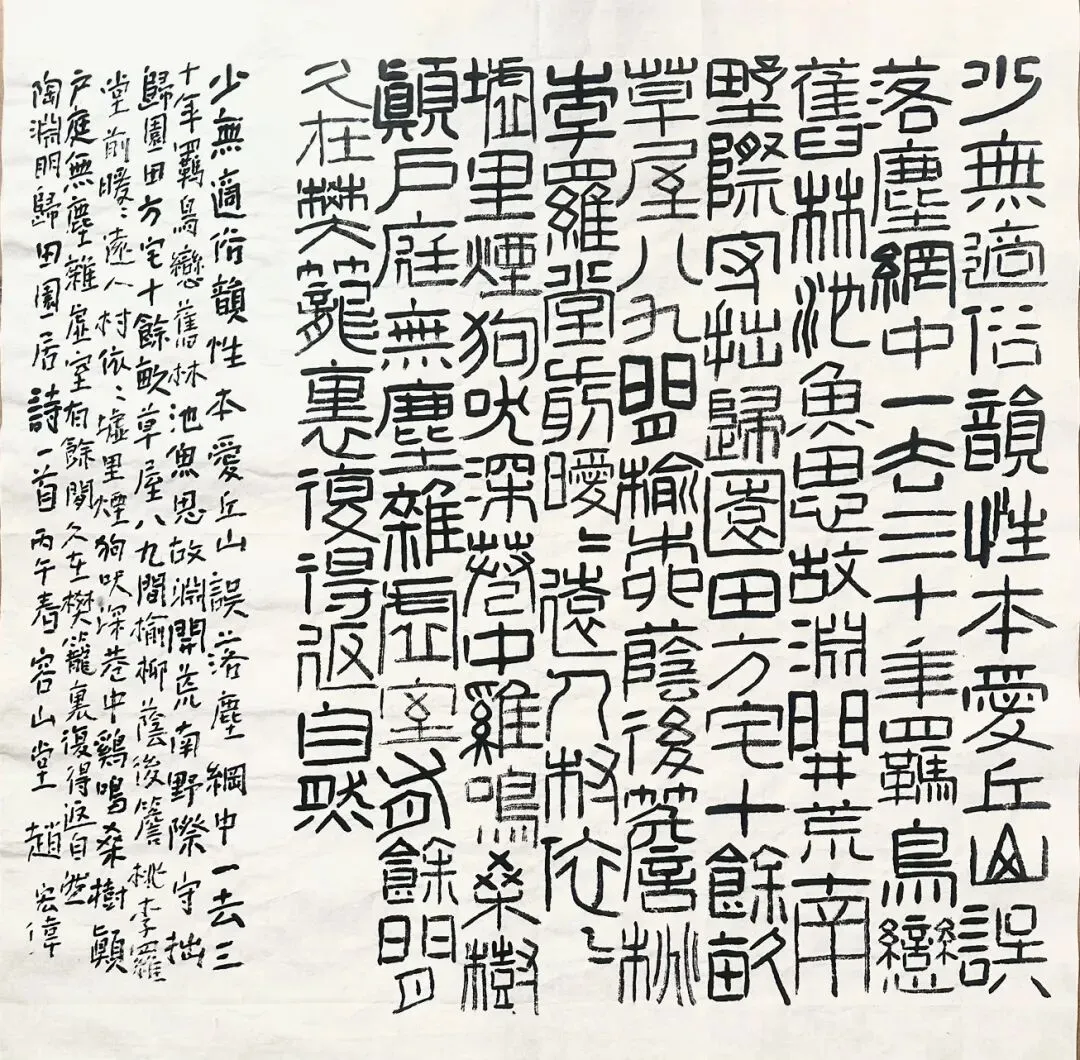 少無適俗韻性本愛丘山誤
落塵網中一去三十年羈鳥戀
舊林池魚思故淵開荒南
野際守拙歸園田方宅十餘畝
草屋八九間榆柳蔭後簷桃
李羅堂前曖〻遠人村依〻
墟里煙狗吠深巷中雞鳴桑樹
顛戶庭無塵雜虛室有餘閒
久在樊籠裏復得返自然
少無適俗韻性本愛丘山誤落塵網中一去三
十年羈鳥戀舊林池魚思故淵開荒南野際守拙
歸園田方宅十餘畝草屋八九間榆柳蔭後簷桃李羅
堂前暖〻遠人村依〻墟里煙狗吠深巷中鷄鳴桑樹顛
戶庭無塵雜虛室有餘閒久在樊籠裏復得返自然
陶淵明歸田園居詩一首丙午春容山堂趙宏偉